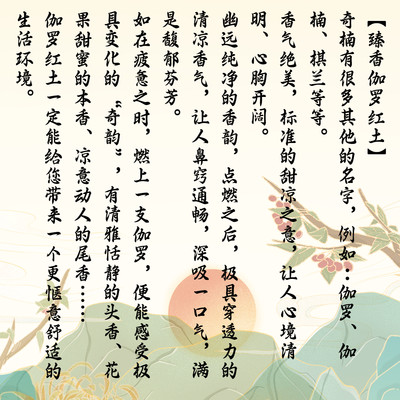 【臻香伽罗红土】
奇楠有很多其他的名字，例如：伽罗、伽
楠、棋兰等等。
香气绝美，标准的甜凉之意，让人心境清
明、心胸开阔。
幽远纯净的香韵，点燃之后，极具穿透力的
清凉香气，让人鼻窍通畅，深吸一口气，满
是馥郁芬芳。
如在疲惫之时，燃上一支伽罗，便能感受极
具变化的“奇韵”，有清雅恬静的头香、花
果甜蜜的本香、凉意动人的尾香……
伽罗红土一定能给您带来一个更惬意舒适的
生活环境。